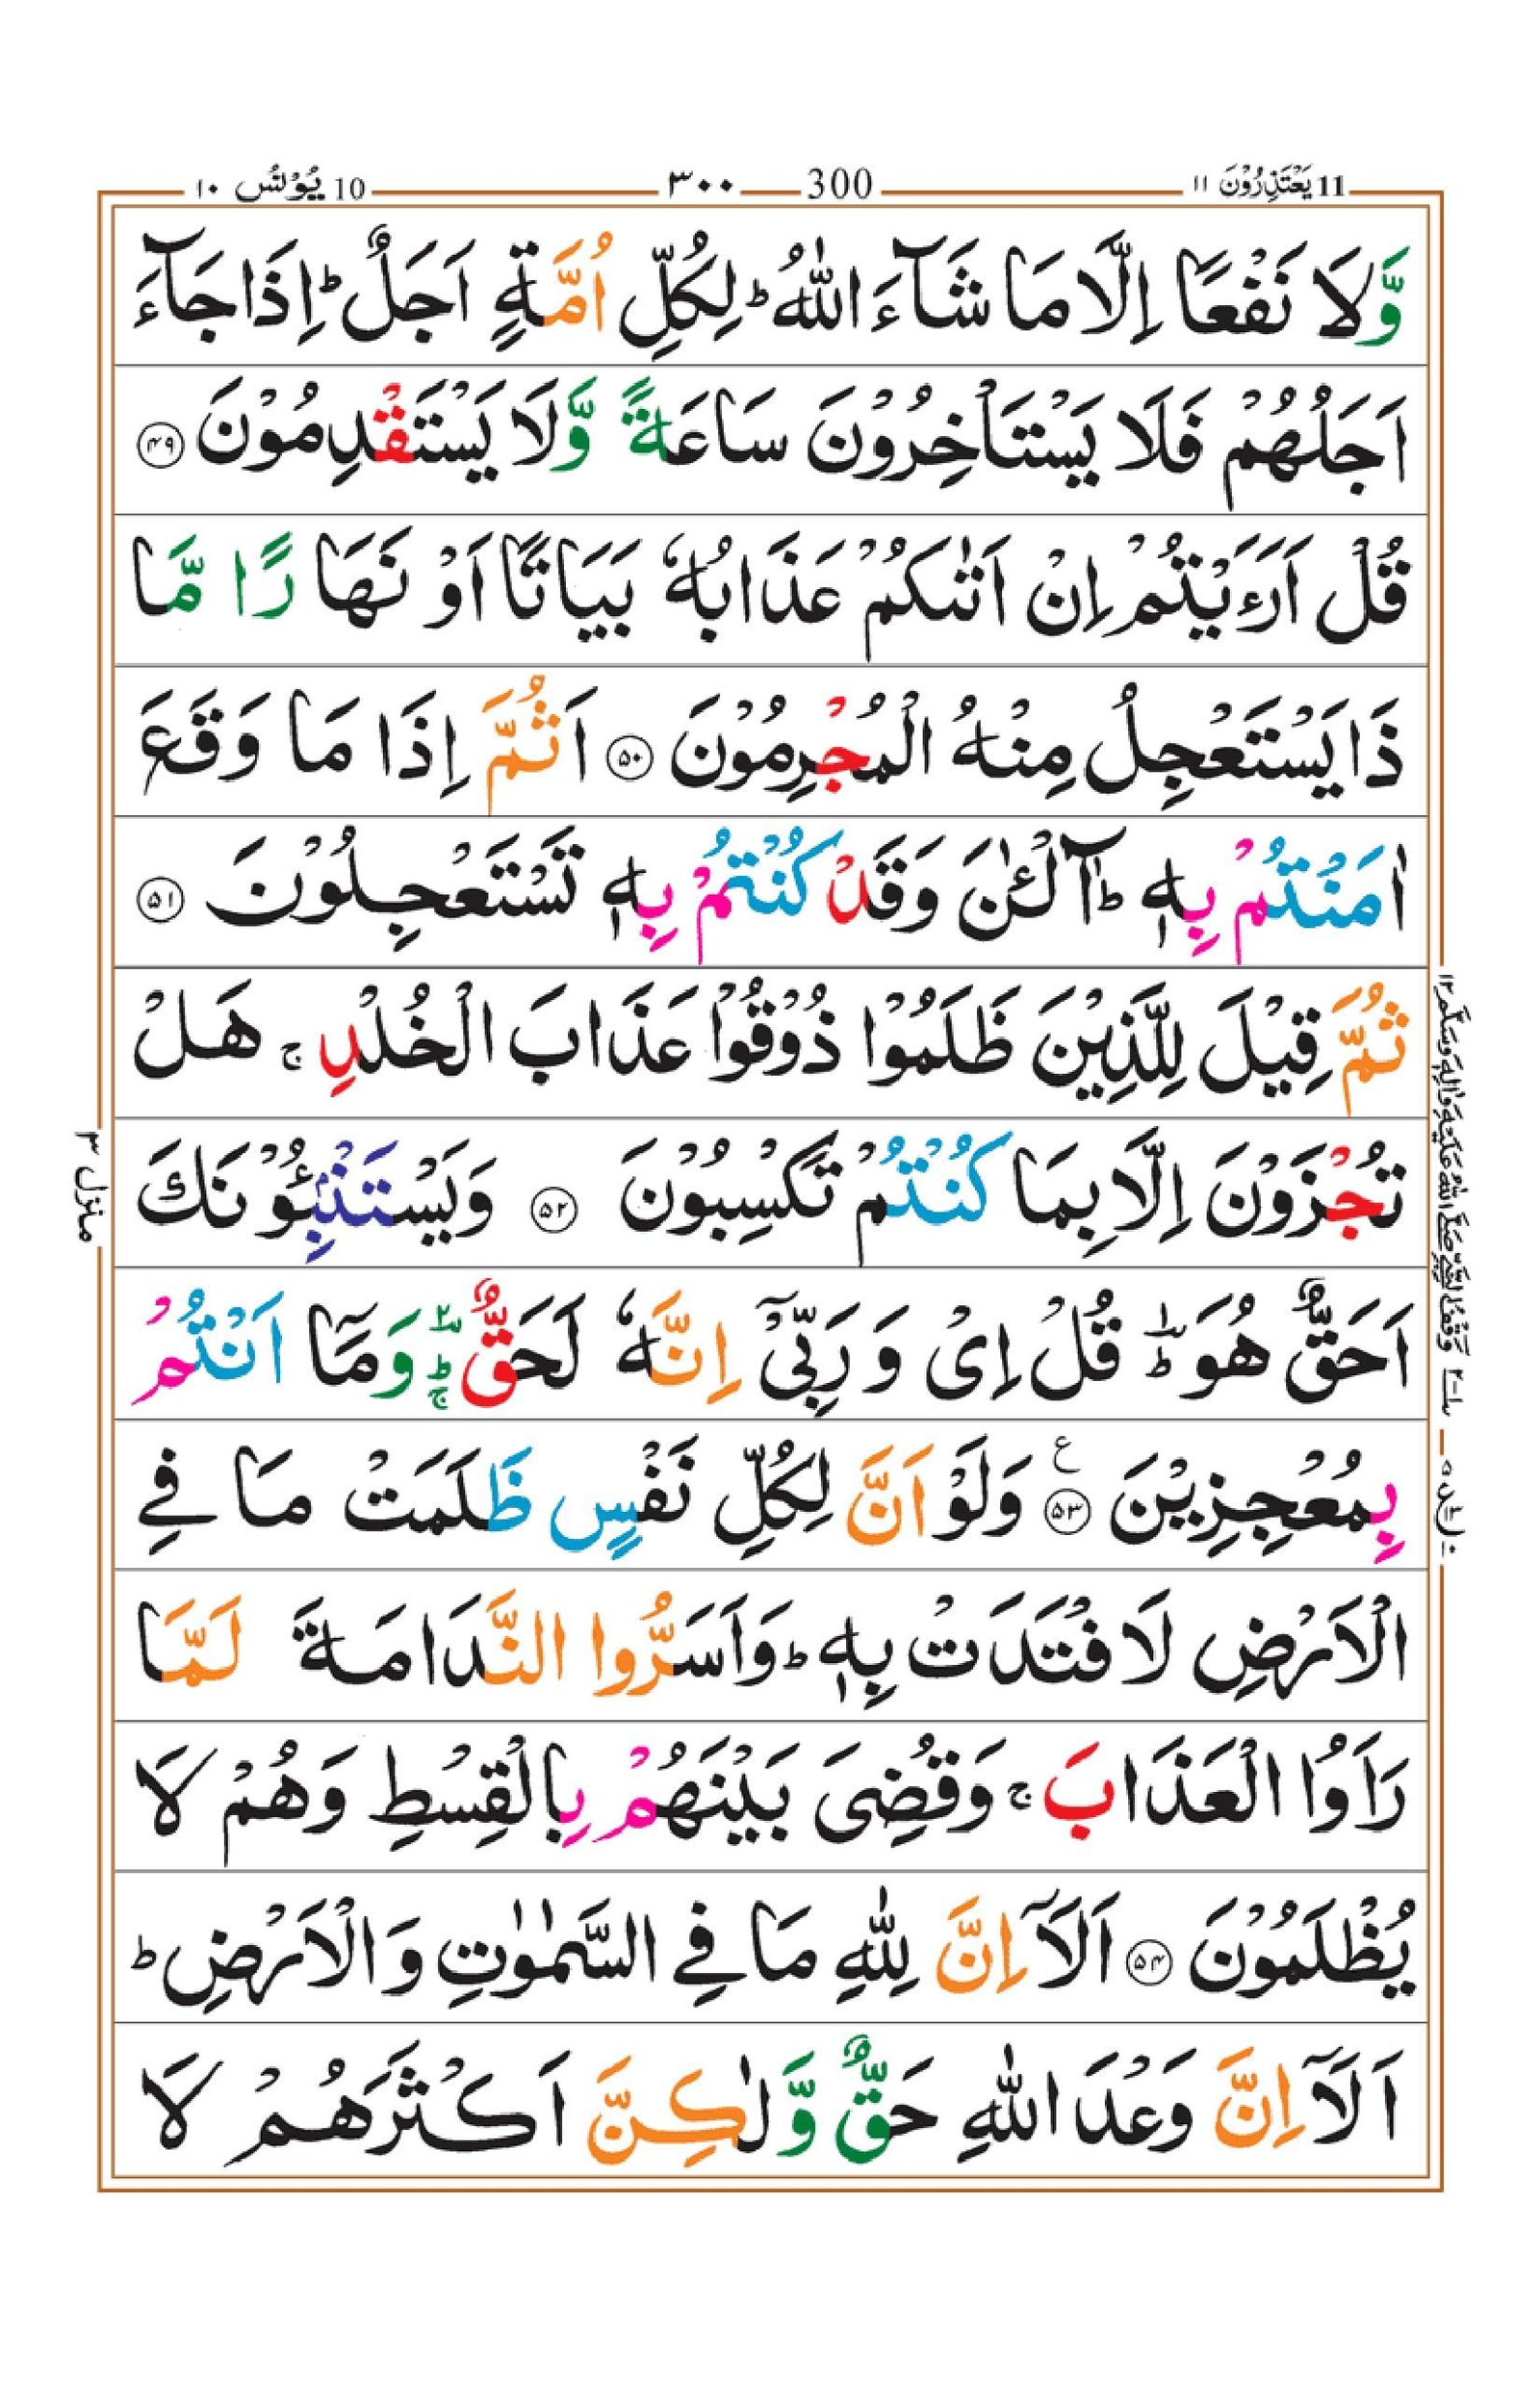 11 يَعْتَذِرُوْنَ ١١ 300 ٣٠٠ 10 يُوْنُس ١٠
وَّلَا نَفْعًا اِلَّا مَا شَآءَ اللّٰهُ ؕ لِكُلِّ اُمَّةٍ اَجَلٌ ؕ اِذَا جَآءَ
اَجَلُهُمْ فَلَا يَسْتَاْخِرُوْنَ سَاعَةً وَّلَا يَسْتَقْدِمُوْنَ ۴۹
قُلْ اَرَءَيْتُمْ اِنْ اَتٰىكُمْ عَذَابُهٗ بَيَاتًا اَوْ نَهَارًا مَّا
ذَا يَسْتَعْجِلُ مِنْهُ الْمُجْرِمُوْنَ ۵۰ اَثُمَّ اِذَا مَا وَقَعَ
اٰمَنْتُمْ بِهٖ ؕ آٰلْـٰٔنَ وَقَدْ كُنْتُمْ بِهٖ تَسْتَعْجِلُوْنَ ۵۱
ثُمَّ قِيْلَ لِلَّذِيْنَ ظَلَمُوْا ذُوْقُوْا عَذَابَ الْخُلْدِ ۚ هَلْ
تُجْزَوْنَ اِلَّا بِمَا كُنْتُمْ تَكْسِبُوْنَ ۵۲ وَيَسْتَنْۢبِـُٔوْنَكَ
اَحَقٌّ هُوَ ؕ قُلْ اِىْ وَ رَبِّىْۤ اِنَّهٗ لَحَقٌّ ؕۚ وَمَاۤ اَنْتُمْ
بِمُعْجِزِيْنَ ۵۳ ع وَلَوْ اَنَّ لِكُلِّ نَفْسٍ ظَلَمَتْ مَا فِى
الْاَرْضِ لَافْتَدَتْ بِهٖ ؕ وَاَسَرُّوا النَّدَامَةَ لَمَّا
رَاَوُا الْعَذَابَ ۚ وَقُضِىَ بَيْنَهُمْ بِالْقِسْطِ وَهُمْ لَا
يُظْلَمُوْنَ ۵۴ اَلَاۤ اِنَّ لِلّٰهِ مَا فِى السَّمٰوٰتِ وَالْاَرْضِ ؕ
اَلَاۤ اِنَّ وَعْدَ اللّٰهِ حَقٌّ وَّلٰكِنَّ اَكْثَرَهُمْ لَا
منزل ۳